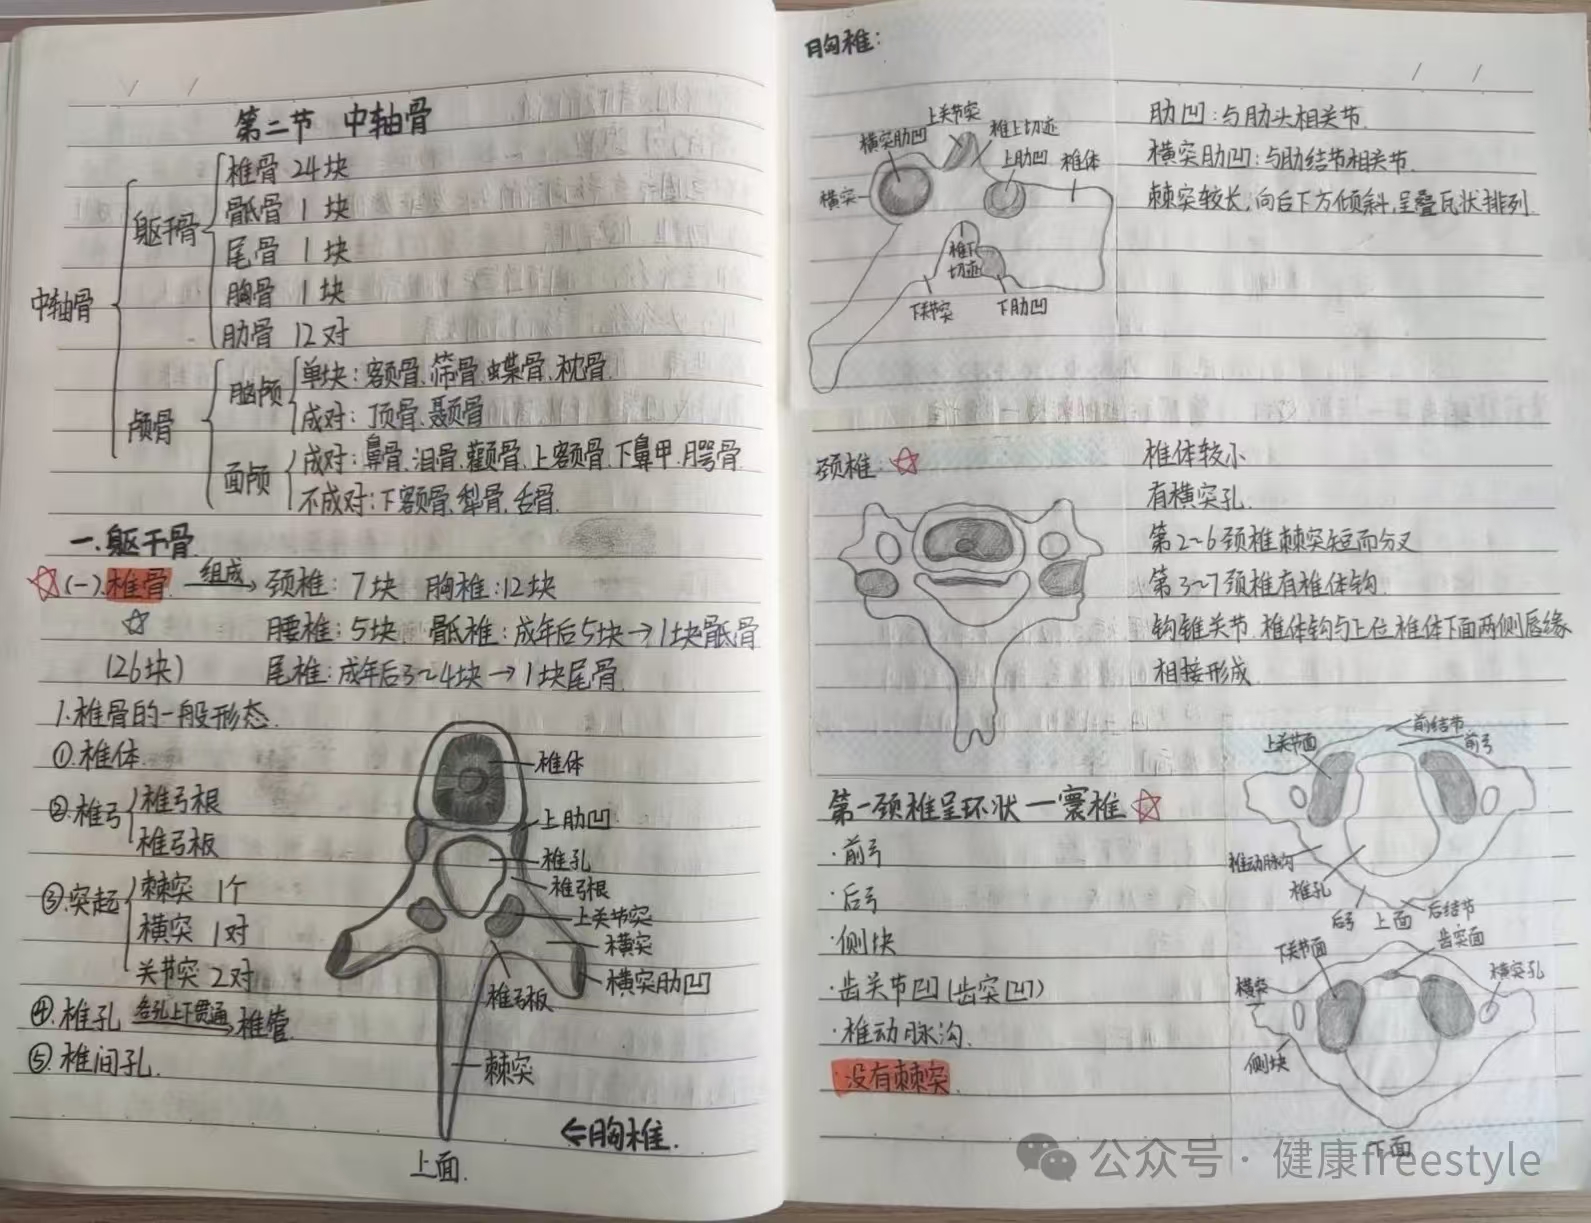 第二节 中轴骨
中轴骨
躯干骨
椎骨 24块
骶骨 1块
尾骨 1块
胸骨 1块
肋骨 12对
颅骨
脑颅
单块：额骨.筛骨.蝶骨.枕骨.
成对：顶骨.颞骨
面颅
成对：鼻骨.泪骨.颧骨.上额骨.下鼻甲.腭骨
不成对：下额骨.犁骨.舌骨.
一.躯干骨
(一).椎骨 组成→ 颈椎：7块 胸椎：12块
腰椎：5块 骶椎：成年后5块→1块骶骨
(26块) 尾椎：成年后3~4块→1块尾骨.
1.椎骨的一般形态.
①.椎体
②.椎弓
椎弓根
椎弓板
③.突起
棘突 1个
横突 1对
关节突 2对
④.椎孔 各孔上下贯通→ 椎管.
⑤.椎间孔.
椎体
上肋凹
椎孔
椎弓根
上关节突
横突
横突肋凹
椎弓板
棘突
⇐胸椎.
上面.
胸椎：
上关节突
横突肋凹
椎上切迹
上肋凹
椎体
横突
椎下
切迹
下关节突
下肋凹
肋凹：与肋头相关节.
横突肋凹：与肋结节相关节.
棘突较长，向后下方倾斜，呈叠瓦状排列.
颈椎：
椎体较小
有横突孔.
第2~6颈椎棘突短而分叉
第3~7颈椎有椎体钩.
钩锥关节.椎体钩与上位椎体下面两侧唇缘
相接形成.
第一颈椎呈环状一寰椎
·前弓
·后弓
·侧块
·齿关节凹(齿突凹)
·椎动脉沟.
·没有棘突.
前结节
上关节面
前弓
椎动脉沟
椎孔
后弓
上面
后结节
下关节面
齿突面
横突孔
横突
侧块
下面
公众号·健康freestyle